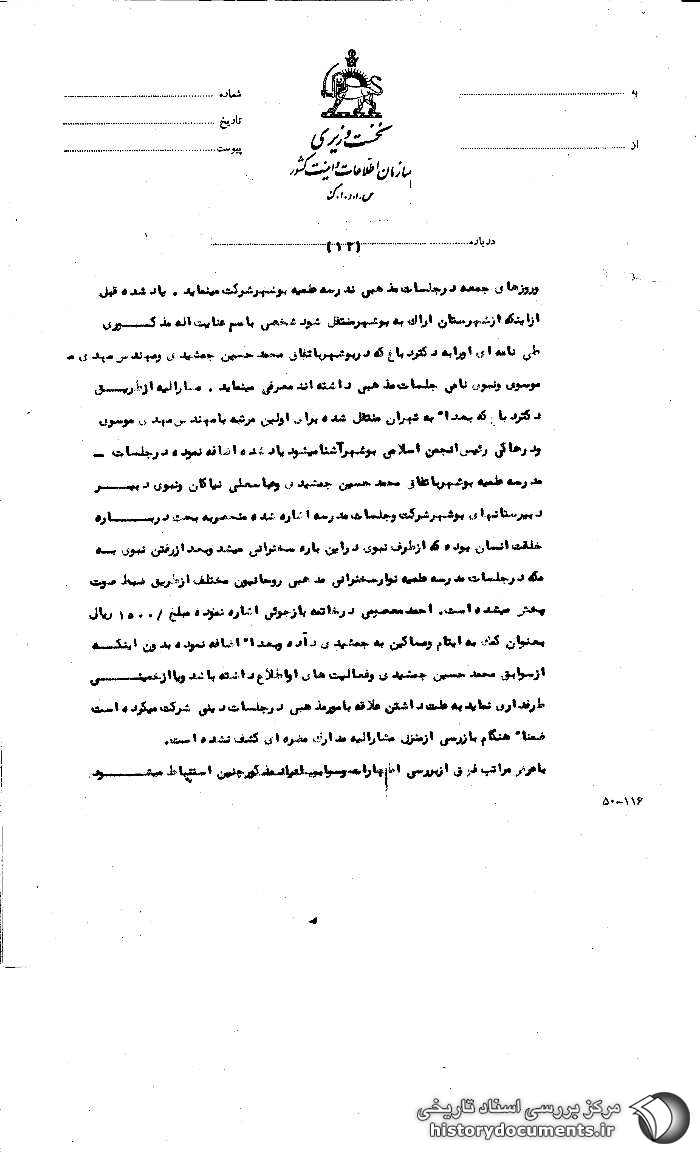 به
از
شماره
تاریخ
پیوست
نخست وزیری
سازمان اطلاعات و امنیت کشور
س.ا.و.ا.ک
درباره (۱۲)
وروزهای جمعه در جلسات مذهبی مدرسه علمیه بوشهر شرکت مینماید . یاد شده قبل
از اینکه از شهرستان اراک به بوشهر منتقل شود شخصی باسم عنایت اله مذکوری
طی نامه ای اورا به دکتر دباغ که در بوشهر باتفاق محمد حسین جمشیدی و مهندس مهدی م
موسوی ونبوی نامی جلسات مذهبی داشته اند معرفی مینماید . مشارالیه از طریق
دکتر دباغ که بعدا" به تهران منتقل شده برای اولین مرتبه با مهندس مهدی موسوی
و درهاکی رئیس انجمن اسلامی بوشهر آشنا میشود یاد شده اضافه نموده در جلسات -
مدرسه علمیه بوشهر باتفاق محمد حسین جمشیدی و عباسعلی نیاکان ونبوی دبیر
دبیرستانهای بوشهر شرکت وجلسات مدرسه اشاره شده منحصر به بحث درباره
خلقت انسان بوده که از طرف نبوی در این باره سخنرانی میشد وبعد از رفتن نبوی به
مکه در جلسات مدرسه علمیه نوار سخنرانی مذهبی روحانیون مختلف از طریق ضبط صوت
پخش میشده است. احمد معصومی در خاتمه بازجوئی اشاره نموده مبلغ /۱۵۰۰ ریال
بعنوان کمک به ایتام ومساکین به جمشیدی داده وبعدا" اضافه نموده بدون اینکه
از سوابق محمد حسین جمشیدی وفعالیت های او اطلاع داشته باشد ویا از خمینی
طرفداری نماید به علت داشتن علاقه بامور مذهبی در جلسات دینی شرکت میکرده است
ضمنا" هنگام بازرسی از منزل مشارالیه مدارک مضره ای کشف نشده است.
باعرض مراتب فوق از بررسی اظهارات وسوابق افراد مذکور چنین استنباط میشود
۵۰-۱۱۶
مرکز بررسی اسناد تاریخی
historydocuments.ir